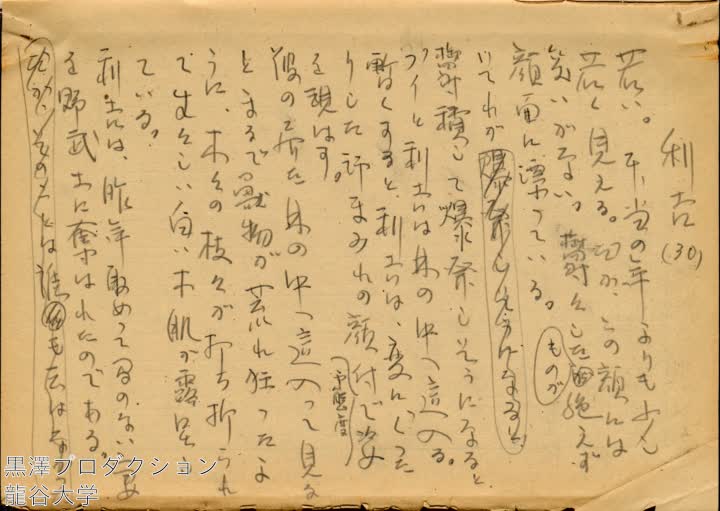 利吉(30)
若い。本当の年よりも少し
若く見える。だが、この顔には
笑いがない。鬱々した絶えず
顔面に漂っている。
ものが
それが爆発しそうになると、
鬱積して爆発しそうになると、
プイと利吉は林の中へ這入る。
暫くすると、利吉は、変にぐつた
りした汗まみれの顔付で姿
を現はす。
彼の居た林の中へ這入って見る
とまるで獣物が荒れ狂ったよ
うに、木々の枝々がおち折られ
て生々しい白い木肌が露呈し
ている。
利吉は、昨年貰って間のない妻
を野武士に奪はれたのである。
だが、そのことは誰も云はない
黒澤プロダクション
龍谷大学